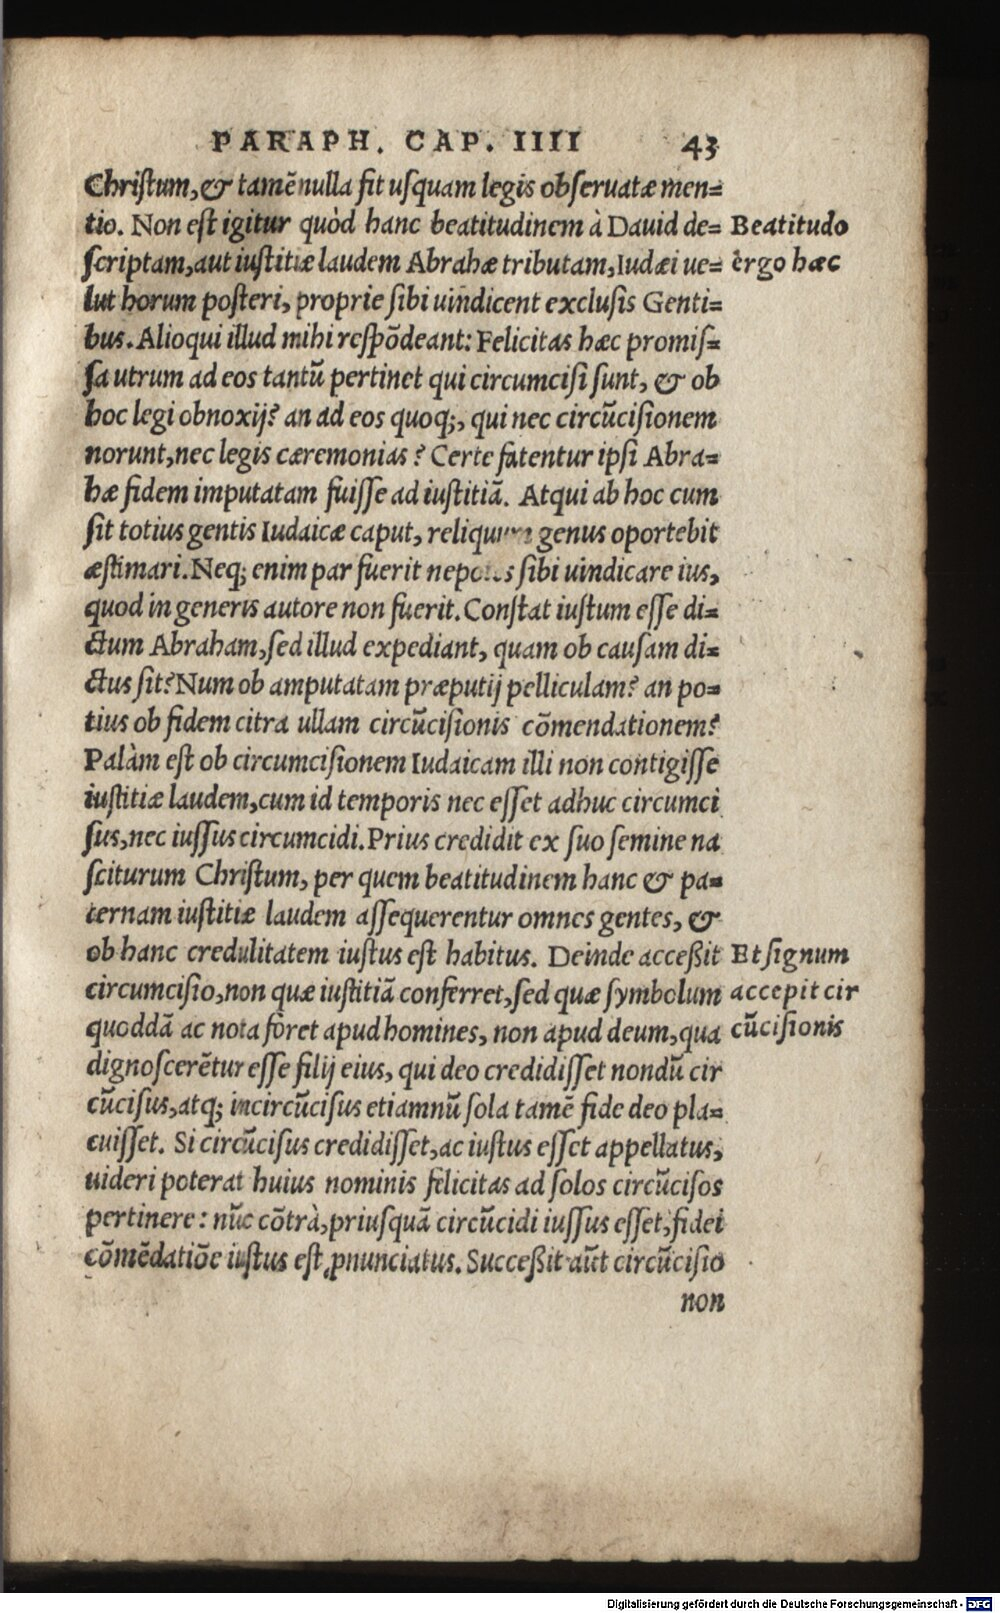 PARAPH. CAP. IIII 43
Christum, & tamē nulla fit usquam legis obseruatæ men=
tio. Non est igitur quòd hanc beatitudinem à Dauid de=
Beatitudo
scriptam, aut iustitiæ laudem Abrahæ tributam, Iudæi ue=
ergo hæc
lut horum posteri, proprie sibi uindicent exclusis Genti=
bus. Alioqui illud mihi respōdeant: Felicitas hæc promis=
sa utrum ad eos tantū pertinet qui circumcisi sunt, & ob
hoc legi obnoxij? an ad eos quoq;, qui nec circūcisionem
norunt, nec legis cæremonias? Certe fatentur ipsi Abra=
hæ fidem imputatam fuisse ad iustitiā. Atqui ab hoc cum
sit totius gentis Iudaicæ caput, reliquum genus oportebit
æstimari. Neq; enim par fuerit nepotes sibi uindicare ius,
quod in generis autore non fuerit. Constat iustum esse di=
ctum Abraham, sed illud expediant, quam ob causam di=
ctus sit? Num ob amputatam præputij pelliculam? an po=
tius ob fidem citra ullam circūcisionis cōmendationem?
Palàm est ob circumcisionem Iudaicam illi non contigisse
iustitiæ laudem, cum id temporis nec esset adhuc circumci
sus, nec iussus circumcidi. Prius credidit ex suo semine na
sciturum Christum, per quem beatitudinem hanc & pa=
ternam iustitiæ laudem assequerentur omnes gentes, &
ob hanc credulitatem iustus est habitus. Deinde acceßit
Et signum
circumcisio, non quæ iustitiā conferret, sed quæ symbolum
accepit cir
quoddā ac nota foret apud homines, non apud deum, qua
cūcisionis
dignoscerētur esse filij eius, qui deo credidisset nondū cir
cūcisus, atq; incircūcisus etiamnū sola tamē fide deo pla=
cuisset. Si circūcisus credidisset, ac iustus esset appellatus,
uideri poterat huius nominis felicitas ad solos circūcisos
pertinere: nūc cōtrà, priusquā circūcidi iussus esset, fidei
cōmēdatiōe iustus est ꝓnunciatus. Succeßit aūt circūcisio
non
Digitalisierung gefördert durch die Deutsche Forschungsgemeinschaft - DFG